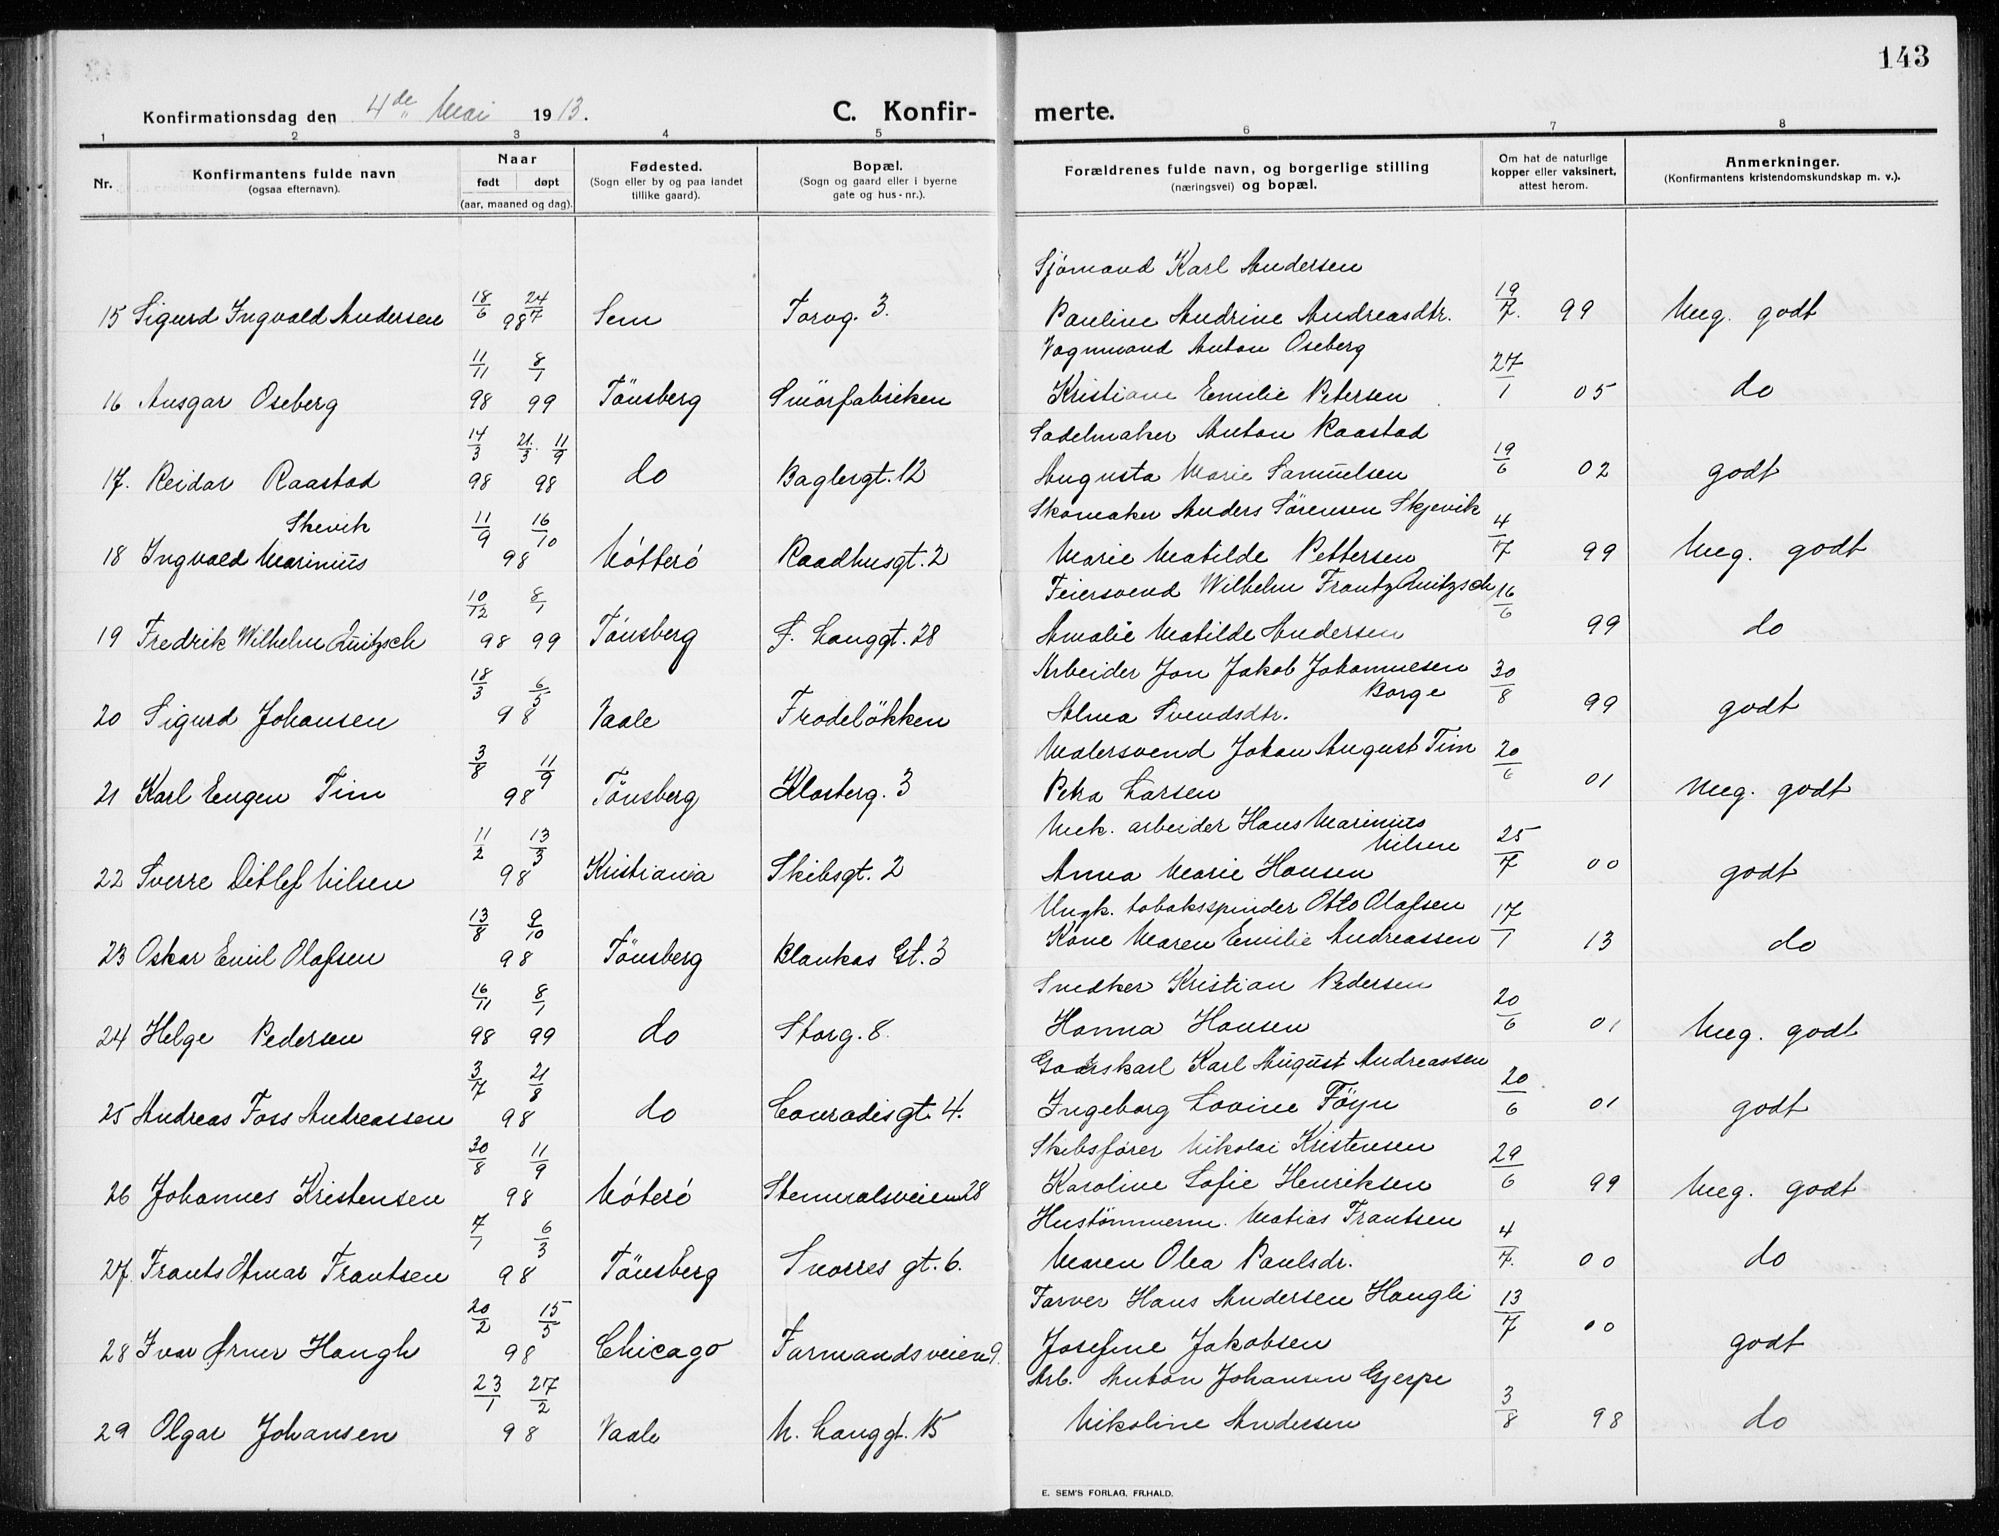 143
Konfirmationsdag den 4de Mai 1913. C. Konfirmerte.
1 2 3 4 5 6 7 8
Nr. Konfirmantens fulde navn (ogsaa efternavn). Naar født døpt (aar, maaned og dag). Fødested. (Sogn eller by og paa landet tillike gaard). Bopæl. (Sogn og gaard eller i byerne gate og hus-nr.). Forældrenes fulde navn, og borgerlige stilling (næringsvei) og bopæl. Om hat de naturlige kopper eller vaksinert, attest herom. Anmerkninger. (Konfirmantens kristendomskundskap m. v.).
Sjömand Karl Andersen
15 Sigurd Ingvald Andersen 18/6 24/7 98 Sem Torvg. 3. Pauline Andrine Andreasdtr. 19/7. 99 Meg. godt
Vognmand Anton Oseberg
16 Ansgar Oseberg 11/11 98 8/1 99 Tönsberg Smörfabriken Kristiane Emilie Petersen 27/1 05 do
Sadelmaker Anton Raastad
17. Reidar Raastad 14/3 98 21/3 11/9 98 do Baglergt. 12 Augusta Marie Samuelsen 19/6 02 godt
Skomaker Anders Sörensen Skjevik
18 Ingvald Marinius Skevik 11/9 16/10 98 Nötterö Raadhusgt. 2 Marie Matilde Pettersen 4/7 99 Meg. godt
Feiersvend Wilhelm Frantz Quitzsch
19 Fredrik Wilhelm Quitzsch 10/12 98 8/1 99 Tönsberg S. Langgt. 28 Amalie Matilde Andersen 16/6 99 do
Arbeider Jon Jakob Johannesen Borge
20 Sigurd Johansen 18/3 6/5 98 Vaale Frodelökken Alma Svendsdtr. 30/8 99 godt
Malersvend Johan August Tim
21 Karl Eugen Tim 3/8 11/9 98 Tönsberg Klosterg. 3 Petra Larsen 20/6 01 Meg. godt
Mek. arbeider Hans Marinius Nilsen
22 Sverre Ditlef Nilsen 11/2 13/3 98 Kristiania Skibsgt. 2 Anna Marie Hansen 25/7 00 godt
Ungk. tobaksspinder Otto Olafsen
23 Oskar Emil Olafsen 13/8 9/10 98 Tönsberg Blankas Gt. 3 Kone Maren Emilie Andreassen 17/1 13 do
Snedker Kristian Pedersen
24 Helge Pedersen 16/11 98 8/1 99 do Storg. 8. Hanna Hansen 20/6 01 Meg. godt
Gaardskarl Karl August Andreassen
25 Andreas Foss Andreassen 3/7 21/8 98 do Conradisgt. 4. Ingeborg Lovine Föyn 20/6 01 godt
Skibsförer Nikolai Kristensen
26 Johannes Kristensen 30/8 11/9 98 Nöterö Stenmalsveien 28 Karoline Sofie Henriksen 29/6 99 Meg. godt
Hustömmerm. Matias Frantsen
27. Frants Otmar Frantsen 7/1 6/3 98 Tönsberg Snorres gt. 6. Maren Olea Paulsdr. 4/7. 00 do
Farver Hans Andersen Haugli
28 Ivar Ørner Haugh 20/2 15/5 98 Chicago Farmandsveien 9. Josefine Jakobsen 13/7 00 godt
Arb. Anton Johansen Gjerpe
29 Olgar Johansen 23/1 27/2 98 Vaale N. Langgt. 15 Nikoline Andersen 3/8 98 do
E. SEM'S FORLAG, FR.HALD.